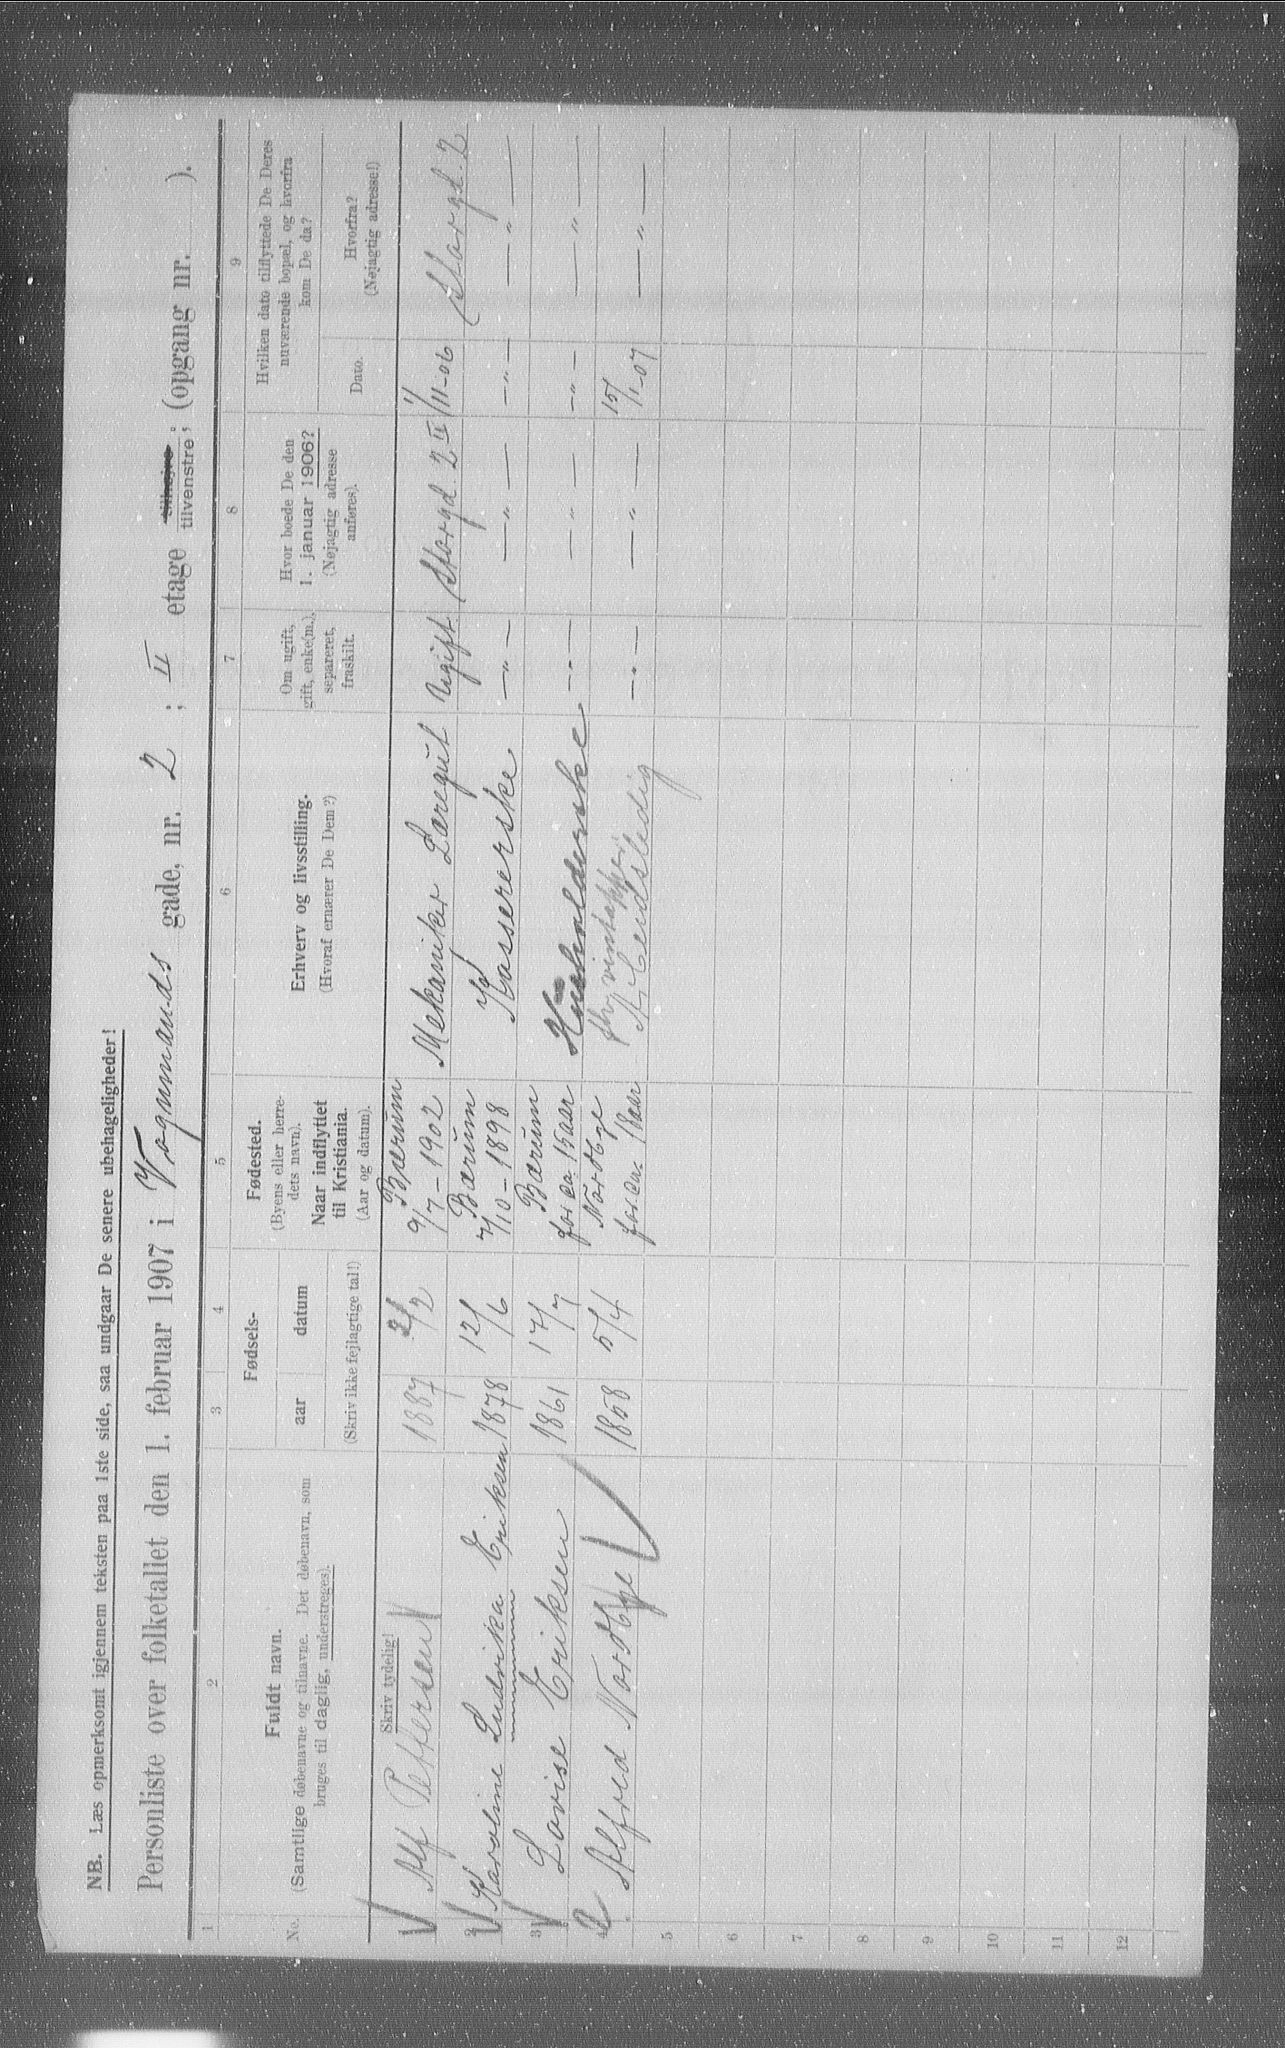 NB. Læs opmerksomt igjennem teksten paa 1ste side, saa undgaar De senere ubehageligheder!
Personliste over folketallet den 1. februar 1907 i Vognmands gade, nr. 2 ; II etage tilhøjre tilvenstre; (opgang nr. ).
1 2 3 4 5 6 7 8 9
No.
Fuldt navn.
(Samtlige døbenavne og tilnavne. Det døbenavn, som
bruges til daglig, understreges).
Fødsels-
aar datum
(Skriv ikke fejlagtige tal!)
Fødested.
(Byens eller herre-
dets navn).
Naar indflyttet
til Kristiania.
(Aar og datum).
Erhverv og livsstilling.
(Hvoraf ernærer De Dem?)
Om ugift,
gift, enke(m.),
separeret,
fraskilt.
Hvor boede De den
1. januar 1906?
(Nøjagtig adresse
anføres).
Hvilken dato tilflyttede De Deres
nuværende bopæl, og hvorfra
kom De da?
Dato.
Hvorfra?
(Nøjagtig adresse!)
Skriv tydelig!
Alf Pettersen 1887 2/2 Bærum 9/7-1902 Mekaniker Læregut Ugift Storgd. 2 II 1/11-06 Storgd. 2
2 Karoline Ludvika Eriksen 1878 12/6 Bærum 7/10-1898 Kassererske —„— —„— —„— —„—
3 Lovise Eriksen 1861 17/7 Bærum for ca. 15 aar Husholderske —„— —„— —„— —„—
4 Alfred Nordbye 1858 5/4 Nordbye for ca. aar fhv. vintapper, Arbeidsledig —„— —„— 15/1-07 —„—
5
6
7
8
9
10
11
12